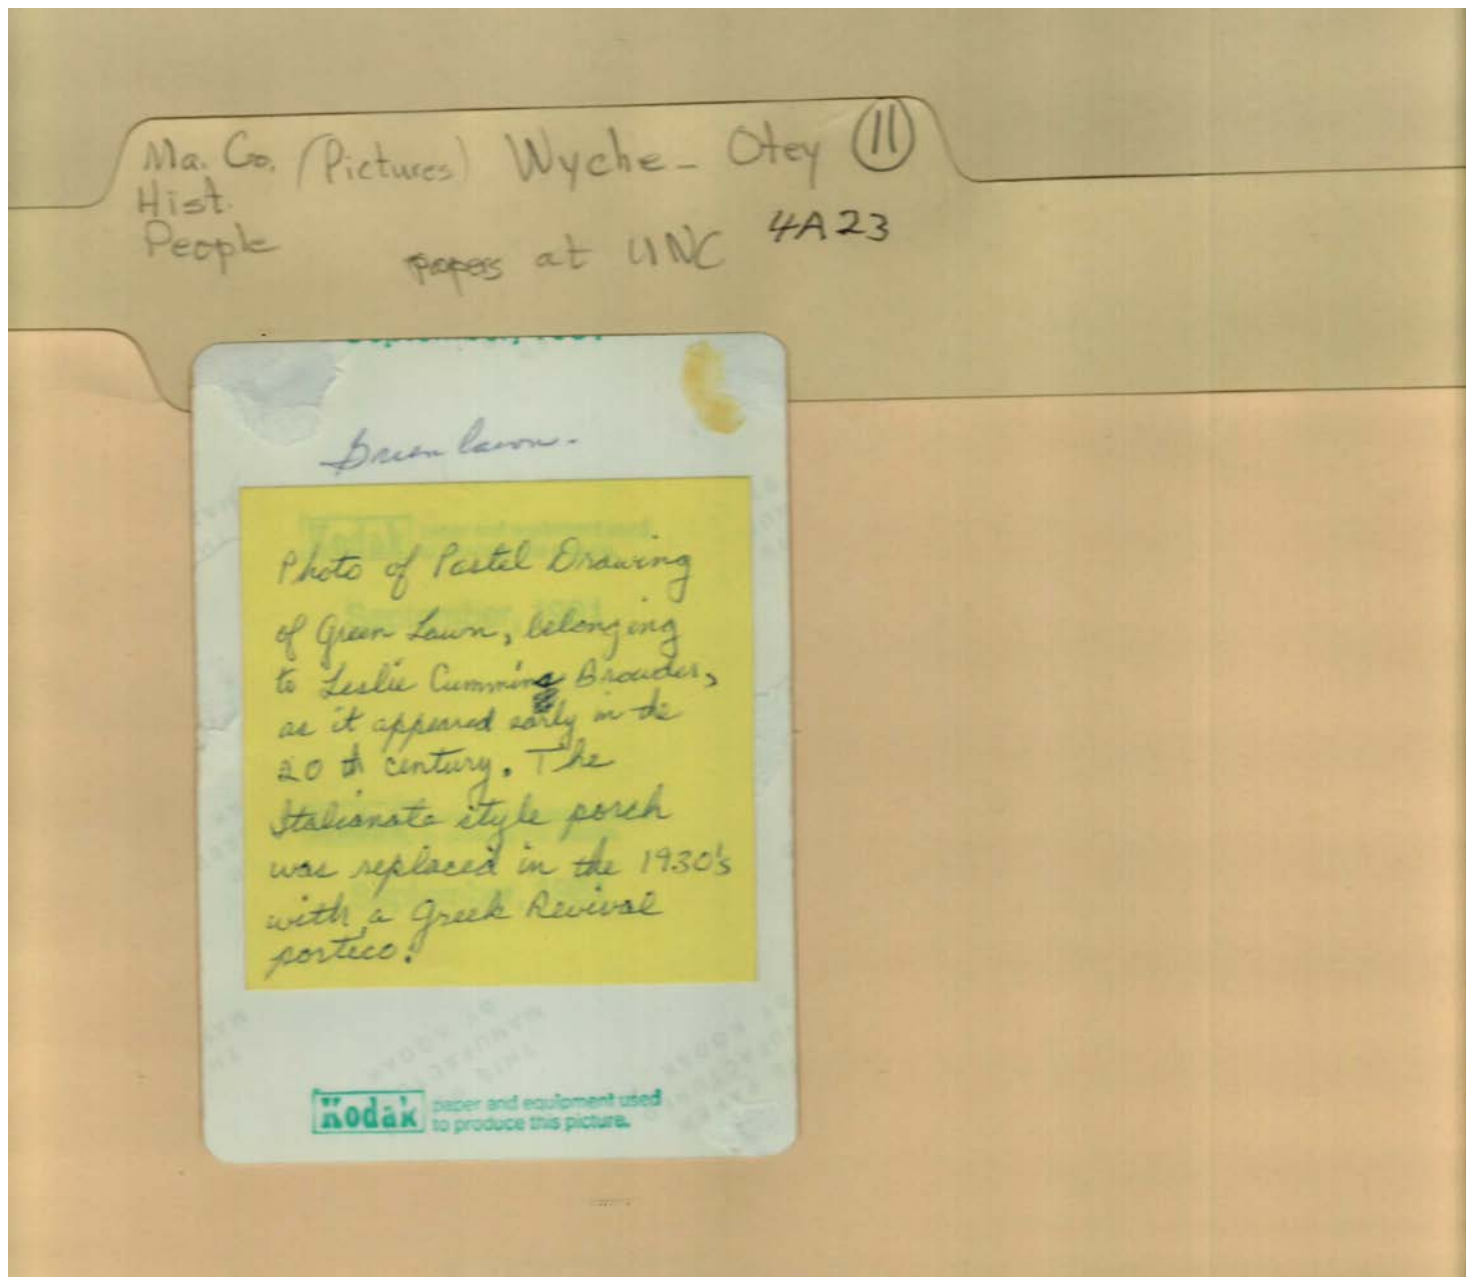 Ma. Co. (Pictures) Wyche - Otey 11
Hist.
People
papers at UNC 4A23
Green Lawn.
Kodak
September, 1981
Photo of Pastel Drawing
of Green Lawn, belonging
to Leslie Cumming Browder,
as it appeared early in the
20th century. The
Italianate style porch
was replaced in the 1930's
with a Greek Revival
portico.
THIS PAPER
MANUFACTURED
BY KODAK
Kodak paper and equipment used
to produce this picture.